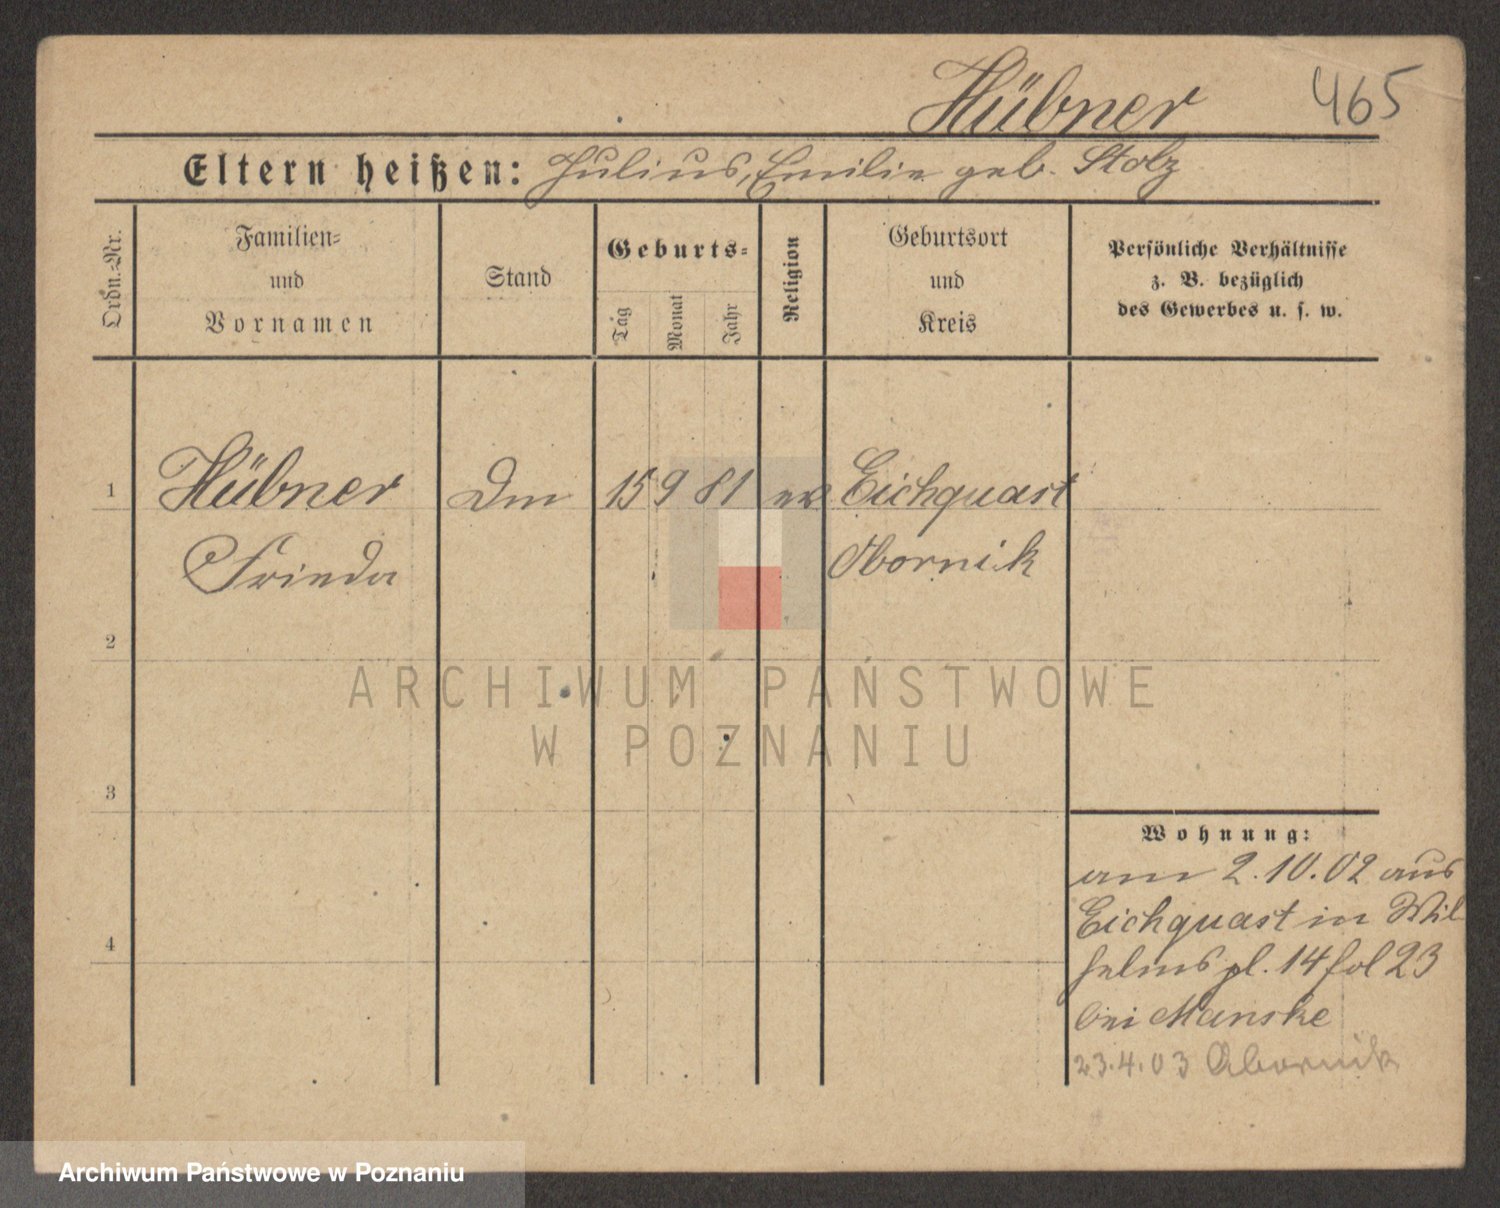 Hübner 465
Eltern heißen: Julius, Emilie geb. Stolz
Ordn.-Nr.
Familien-
und
Vornamen
Stand
Geburts-
Tag
Monat
Jahr
Religion
Geburtsort
und
Kreis
Persönliche Verhältnisse
z. B. bezüglich
des Gewerbes u. s. w.
1 Hübner 15 9 81 ev Eichquast
Frieda Obornik
2
ARCHIWUM PAŃSTWOWE
W POZNANIU
3
Wohnung:
am 2.10.02 aus
Eichquast in Wil
helmspl. 14 fol 23
4
bei Manske
23.4.03 Obornik
Archiwum Państwowe w Poznaniu